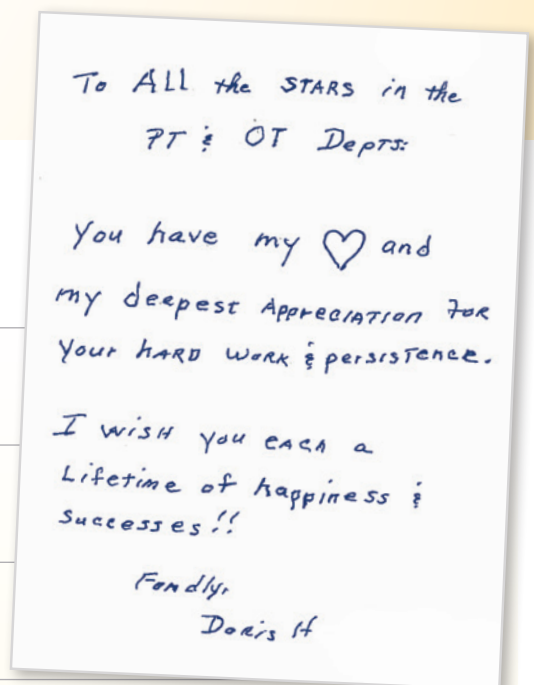 To ALL the STARS in the
PT & OT Depts:
You have my ♡ and
my deepest Appreciation For
Your hard work & persistence.
I wish you each a
Lifetime of happiness &
Successes!!
Fondly,
Doris H